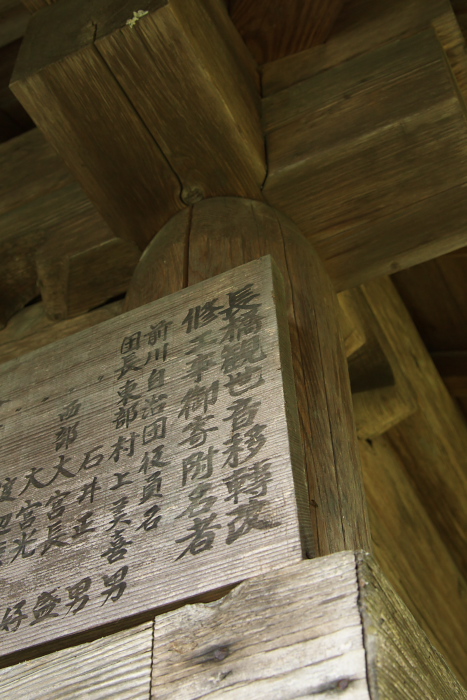 長橋観世音移轉改
修工事御寄附名者
前川自治団役員名
団長東部村上美喜男
石井正男
西部大宮長盛
大宮光